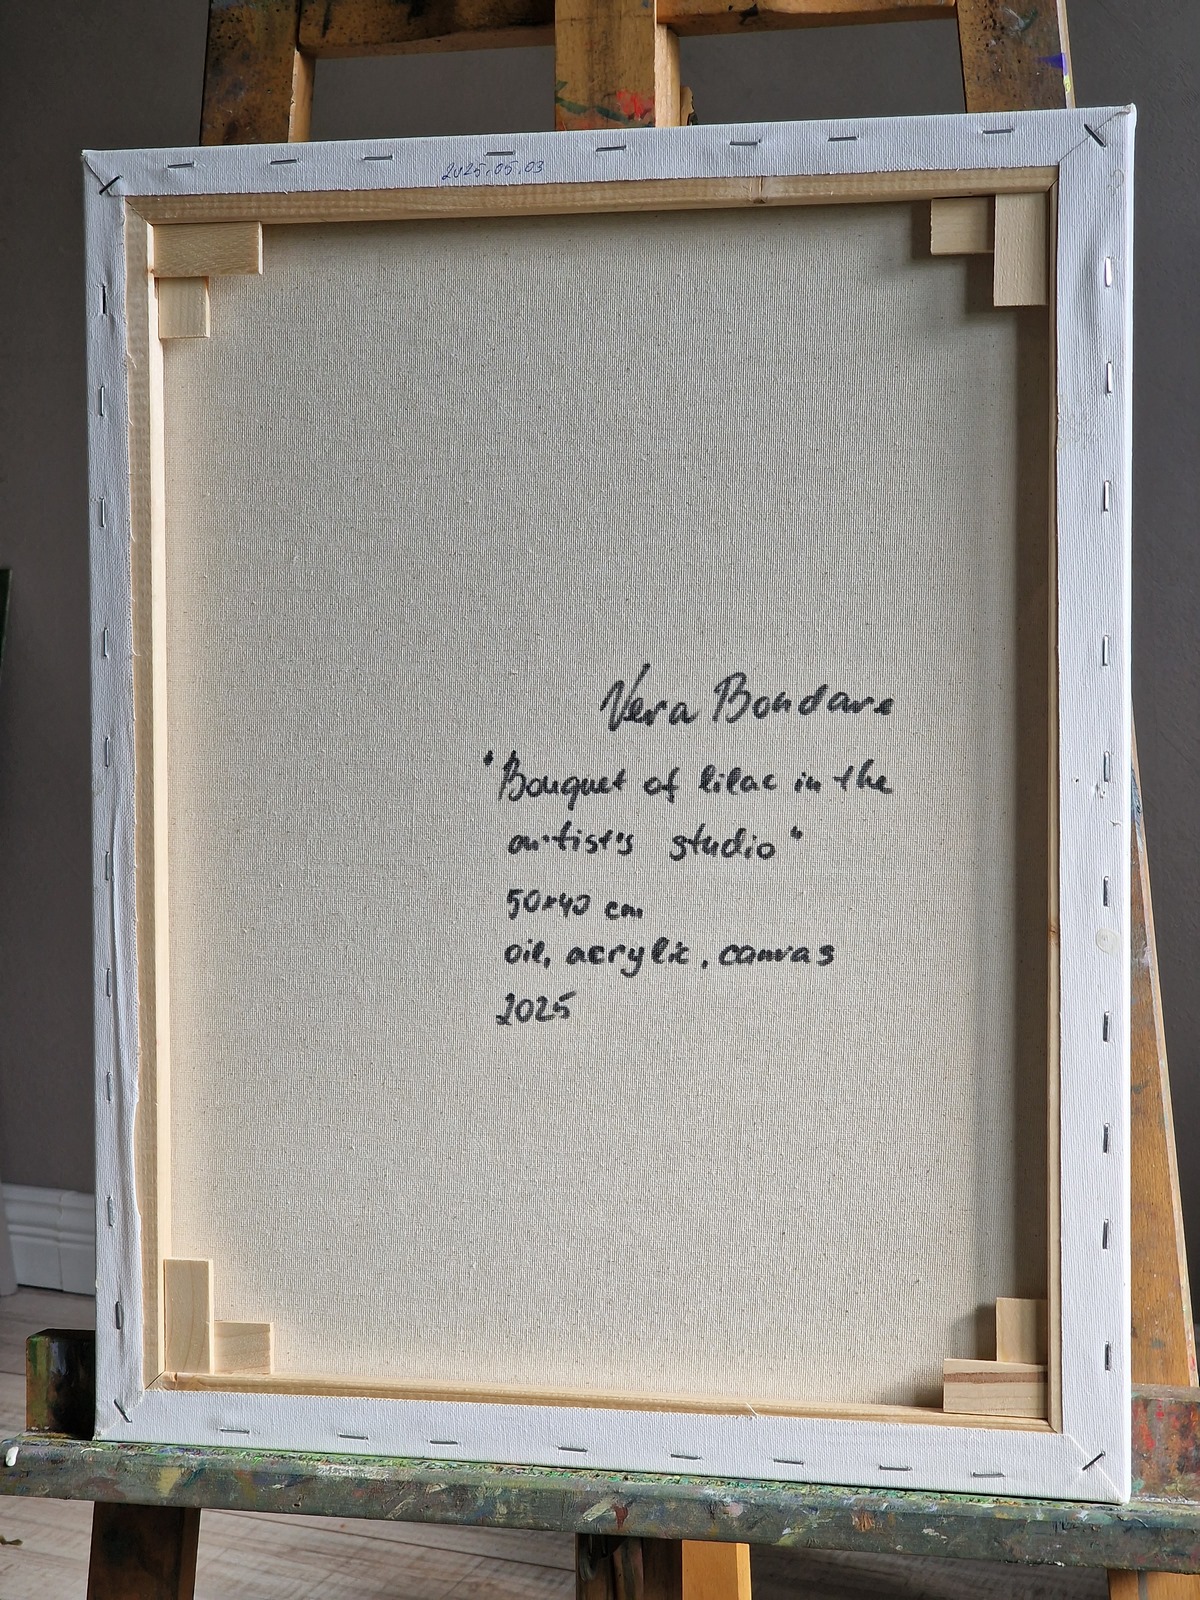 2025.05.03
Vera Bondare
"Bouquet of lilac in the
artist's studio"
50x40 cm
oil, acrylic, canvas
2025